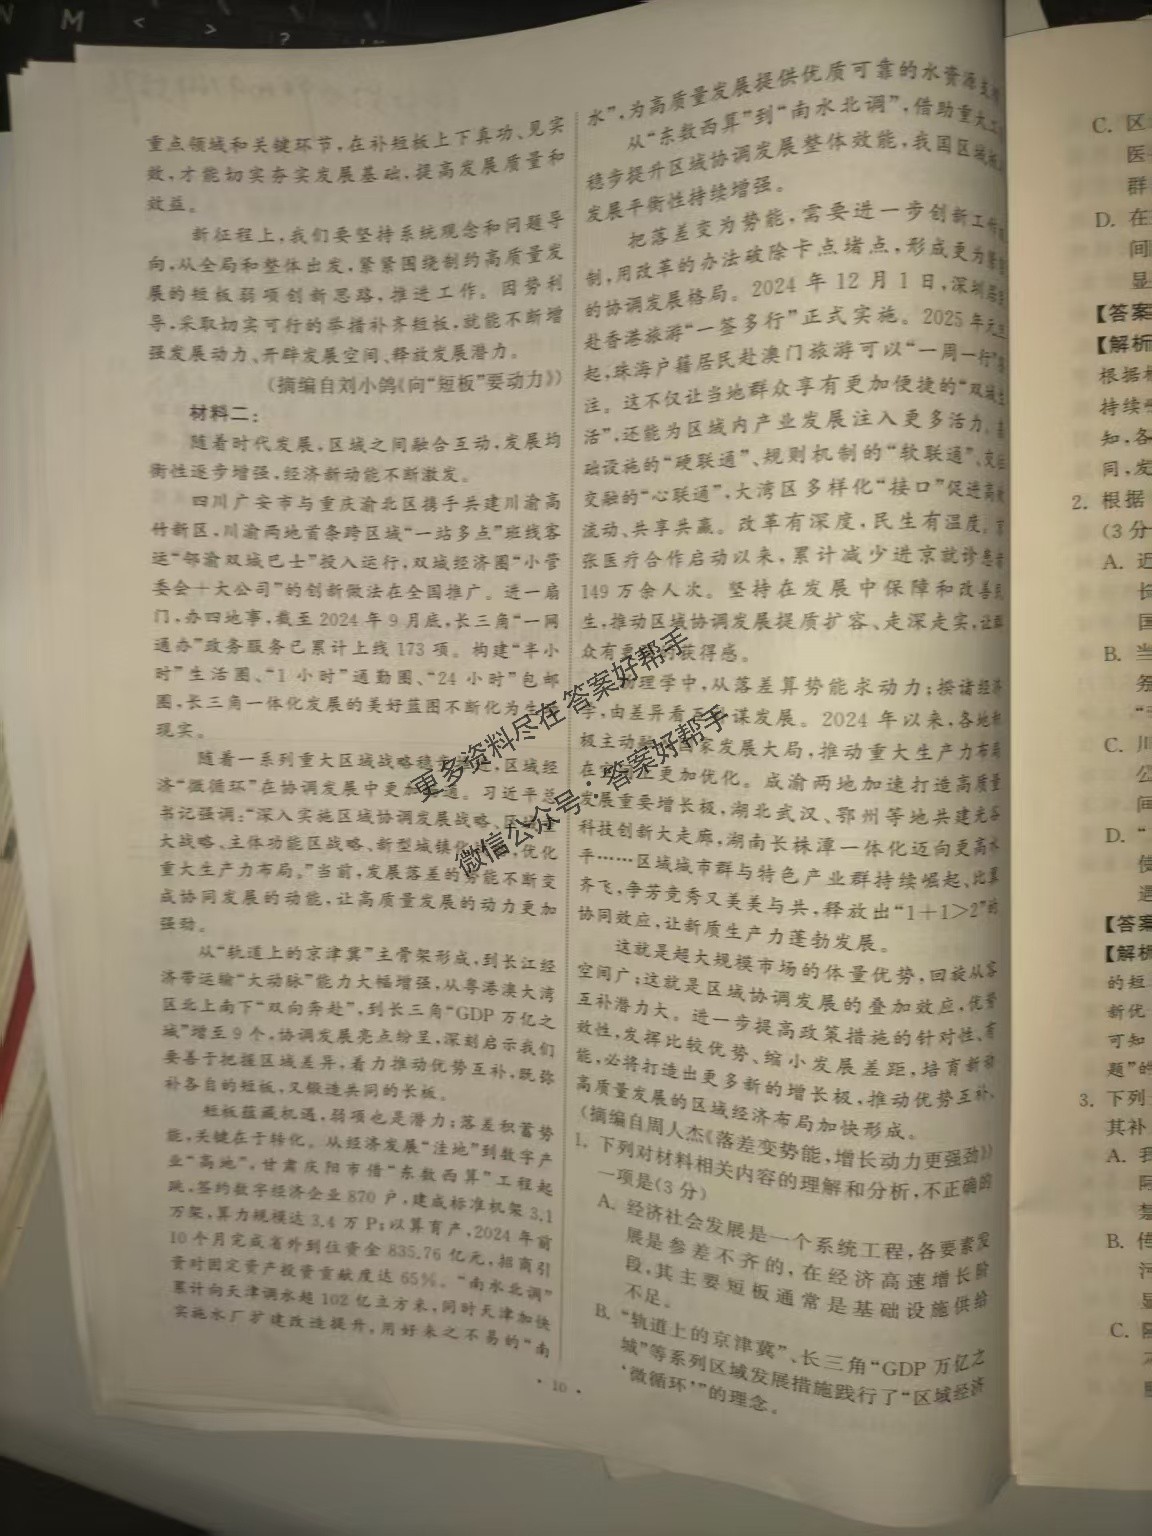 重点领域和关键环节,在补短板上下真功、见实
效,才能切实夯实发展基础,提高发展质量和
效益。
新征程上,我们要坚持系统观念和问题导
向,从全局和整体出发,紧紧围绕制约高质量发
展的短板弱项创新思路,推进工作。因势利
导,采取切实可行的举措补齐短板,就能不断增
强发展动力、开辟发展空间、释放发展潜力。
(摘编自刘小鸽《向“短板”要动力》)
材料二:
随着时代发展,区域之间融合互动,发展均
衡性逐步增强,经济新动能不断激发。
四川广安市与重庆渝北区携手共建川渝高
竹新区,川渝两地首条跨区域“一站多点”班线客
运“邻渝双城巴士”投入运行,双城经济圈“小管
委会+大公司”的创新做法在全国推广。进一扇
门,办四地事,截至2024年9月底,长三角“一网
通办”政务服务已累计上线173项。构建“半小
时”生活圈、“1小时”通勤圈、“24小时”包邮
圈,长三角一体化发展的美好蓝图不断化为生
现实。
随着一系列重大区域战略稳
进,区域经
济“微循环”在协调发展中更加
通。习近平总
书记强调:“深入实施区域协调发展战略、区域重
大战略、主体功能区战略、新型城镇化
,优化
重大生产力布局。”当前,发展落差的势能不断变
成协同发展的动能,让高质量发展的动力更加
强劲。
从“轨道上的京津冀”主骨架形成,到长江经
济带运输“大动脉”能力大幅增强,从粤港澳大湾
区北上南下“双向奔赴”,到长三角“GDP万亿之
城”增至9个,协调发展亮点纷呈,深刻启示我们
要善于把握区域差异,着力推动优势互补,既弥
补各自的短板,又锻造共同的长板。
短板蕴藏机遇,弱项也是潜力;落差积蓄势
能,关键在于转化。从经济发展“洼地”到数字产
业“高地”,甘肃庆阳市借“东数西算”工程起
跳,签约数字经济企业870户,建成标准机架3.1
万架,算力规模达3.4万P;以算育产,2024年前
10个月完成省外到位资金835.76亿元,招商引
资对固定资产投资贡献度达65%。“南水北调”
累计向天津调水超102亿立方米,同时天津加快
实施水厂扩建改造提升,用好来之不易的“南
水”,为高质量发展提供优质可靠的水资源支
从“东数西算”到“南水北调”,借助重大工
稳步提升区域协调发展整体效能,我国区域
发展平衡性持续增强。
把落差变为势能,需要进一步创新工作
制,用改革的办法破除卡点堵点,形成更为
的协调发展格局。2024年12月1日,深圳
赴香港旅游“一签多行”正式实施。2025年元旦
起,珠海户籍居民赴澳门旅游可以“一周一行”
注。这不仅让当地群众享有更加便捷的“双城生
活”,还能为区域内产业发展注入更多活力。基
础设施的“硬联通”、规则机制的“软联通”、交往
交融的“心联通”,大湾区多样化“接口”促进高效
流动、共享共赢。改革有深度,民生有温度。京
张医疗合作启动以来,累计减少进京就诊患者
149万余人次。坚持在发展中保障和改善民
生,推动区域协调发展提质扩容、走深走实,让群
众有更
获得感。
物理学中,从落差算势能求动力;揆诸经济
学,由差异看
谋发展。2024年以来,各地积
极主动融
国家发展大局,推动重大生产力布局
在
上更加优化。成渝两地加速打造高质量
发展重要增长极,湖北武汉、鄂州等地共建光谷
科技创新大走廊,湖南长株潭一体化迈向更高水
平……区域城市群与特色产业群持续崛起、比翼
齐飞,争芳竞秀又美美与共,释放出“1+1>2”的
协同效应,让新质生产力蓬勃发展。
这就是超大规模市场的体量优势,回旋从容
空间广;这就是区域协调发展的叠加效应,优势
互补潜力大。进一步提高政策措施的针对性、有
效性,发挥比较优势、缩小发展差距,培育新动
能,必将打造出更多新的增长极,推动优势互补、
高质量发展的区域经济布局加快形成。
(摘编自周人杰《落差变势能,增长动力更强劲》)
1. 下列对材料相关内容的理解和分析,不正确的
一项是(3分)
A. 经济社会发展是一个系统工程,各要素发
展是参差不齐的,在经济高速增长阶
段,其主要短板通常是基础设施供给
不足。
B. “轨道上的京津冀”、长三角“GDP万亿之
城”等系列区域发展措施践行了“区域经济
‘微循环’”的理念。
· 10 ·
更多资料尽在 答案好帮手
微信公众号:答案好帮手
C. 区
医
群
D. 在
间
显
【答案
【解析
根据
持续
知,各
同,发
2. 根据
(3分
A. 近
长
国
B. 当
务
C. 川
公
间
D. “
使
遇
【答案
【解析
的短
新优
可知
题”的
3. 下列
其补
A. 我
阿
禁
B. 传
河
显
C.